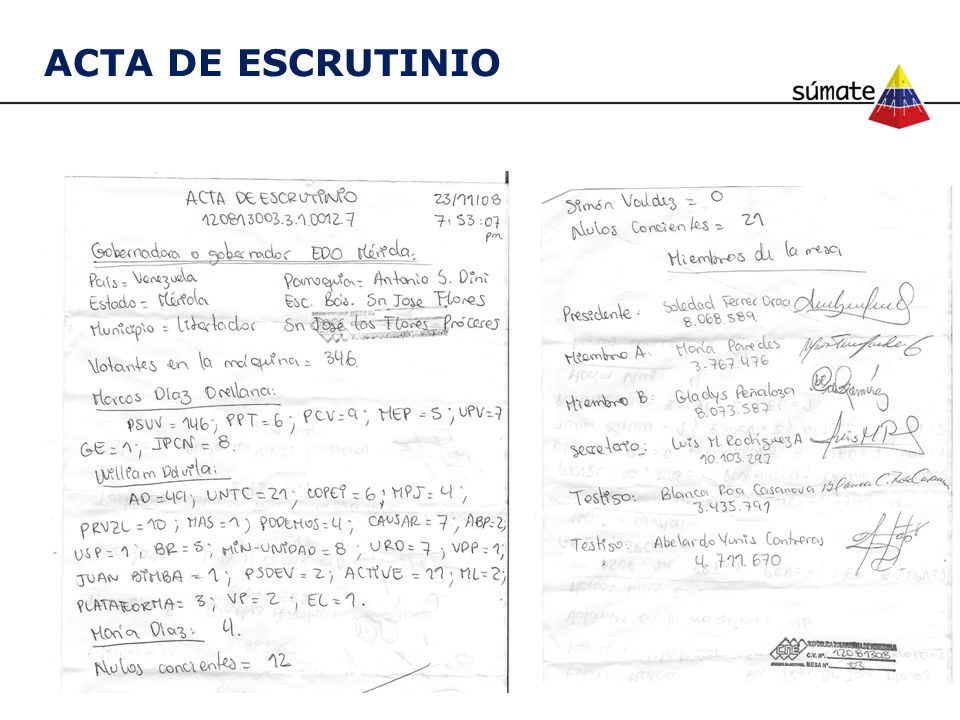 ACTA DE ESCRUTINIO
súmate
ACTA DE ESCRUTINIO 23/11/08
120813003.3.1.0012.7 7:53:07
pm.
Gobernadora o gobernador EDO Mérida:
País = Venezuela Parroquia = Antonio S. Dini
Estado = Mérida Esc. Bás. Sn Jose Flores
Municipio = Libertador Sn José las Flores Próceres
Votantes en la máquina = 346.
Marcos Díaz Orellana:
PSUV = 146; PPT = 6; PCV = 9; MEP = 5; UPV = 7
GE = 1; IPCN = 8.
William Dávila:
AD = 49; UNTC = 21; COPEI = 6; MPJ = 4;
PRVZL = 10; MAS = 1; PODEMOS = 4; CAUSAR = 7; ABP = 2;
USP = 1; BR = 5; MIN-UNIDAD = 8; URD = 7; VDP = 1;
JUAN BIMBA = 1; PSDEV = 2; ACTIVE = 11; ML = 2;
PLATAFORMA = 3; VP = 2; EL = 1.
María Díaz: 4.
Nulos concientes = 12
Simón Valdez = 0
Nulos Concientes = 21
Miembros de la mesa
Presidente: Soledad Ferrer
8.068.589.
Miembro A: María Paredes
3.767.476
Miembro B: Gladys Peñaloza
8.073.587
secretario: Luis M. Rodríguez A
10.103.292
Testigo: Blanca Roa Casanova
3.435.791
Testigo: Abelardo Yunis Contreras
4.711.670
CNE
REPÚBLICA BOLIVARIANA DE VENEZUELA
C.V. Nº. 120813003
MESA Nº. 03